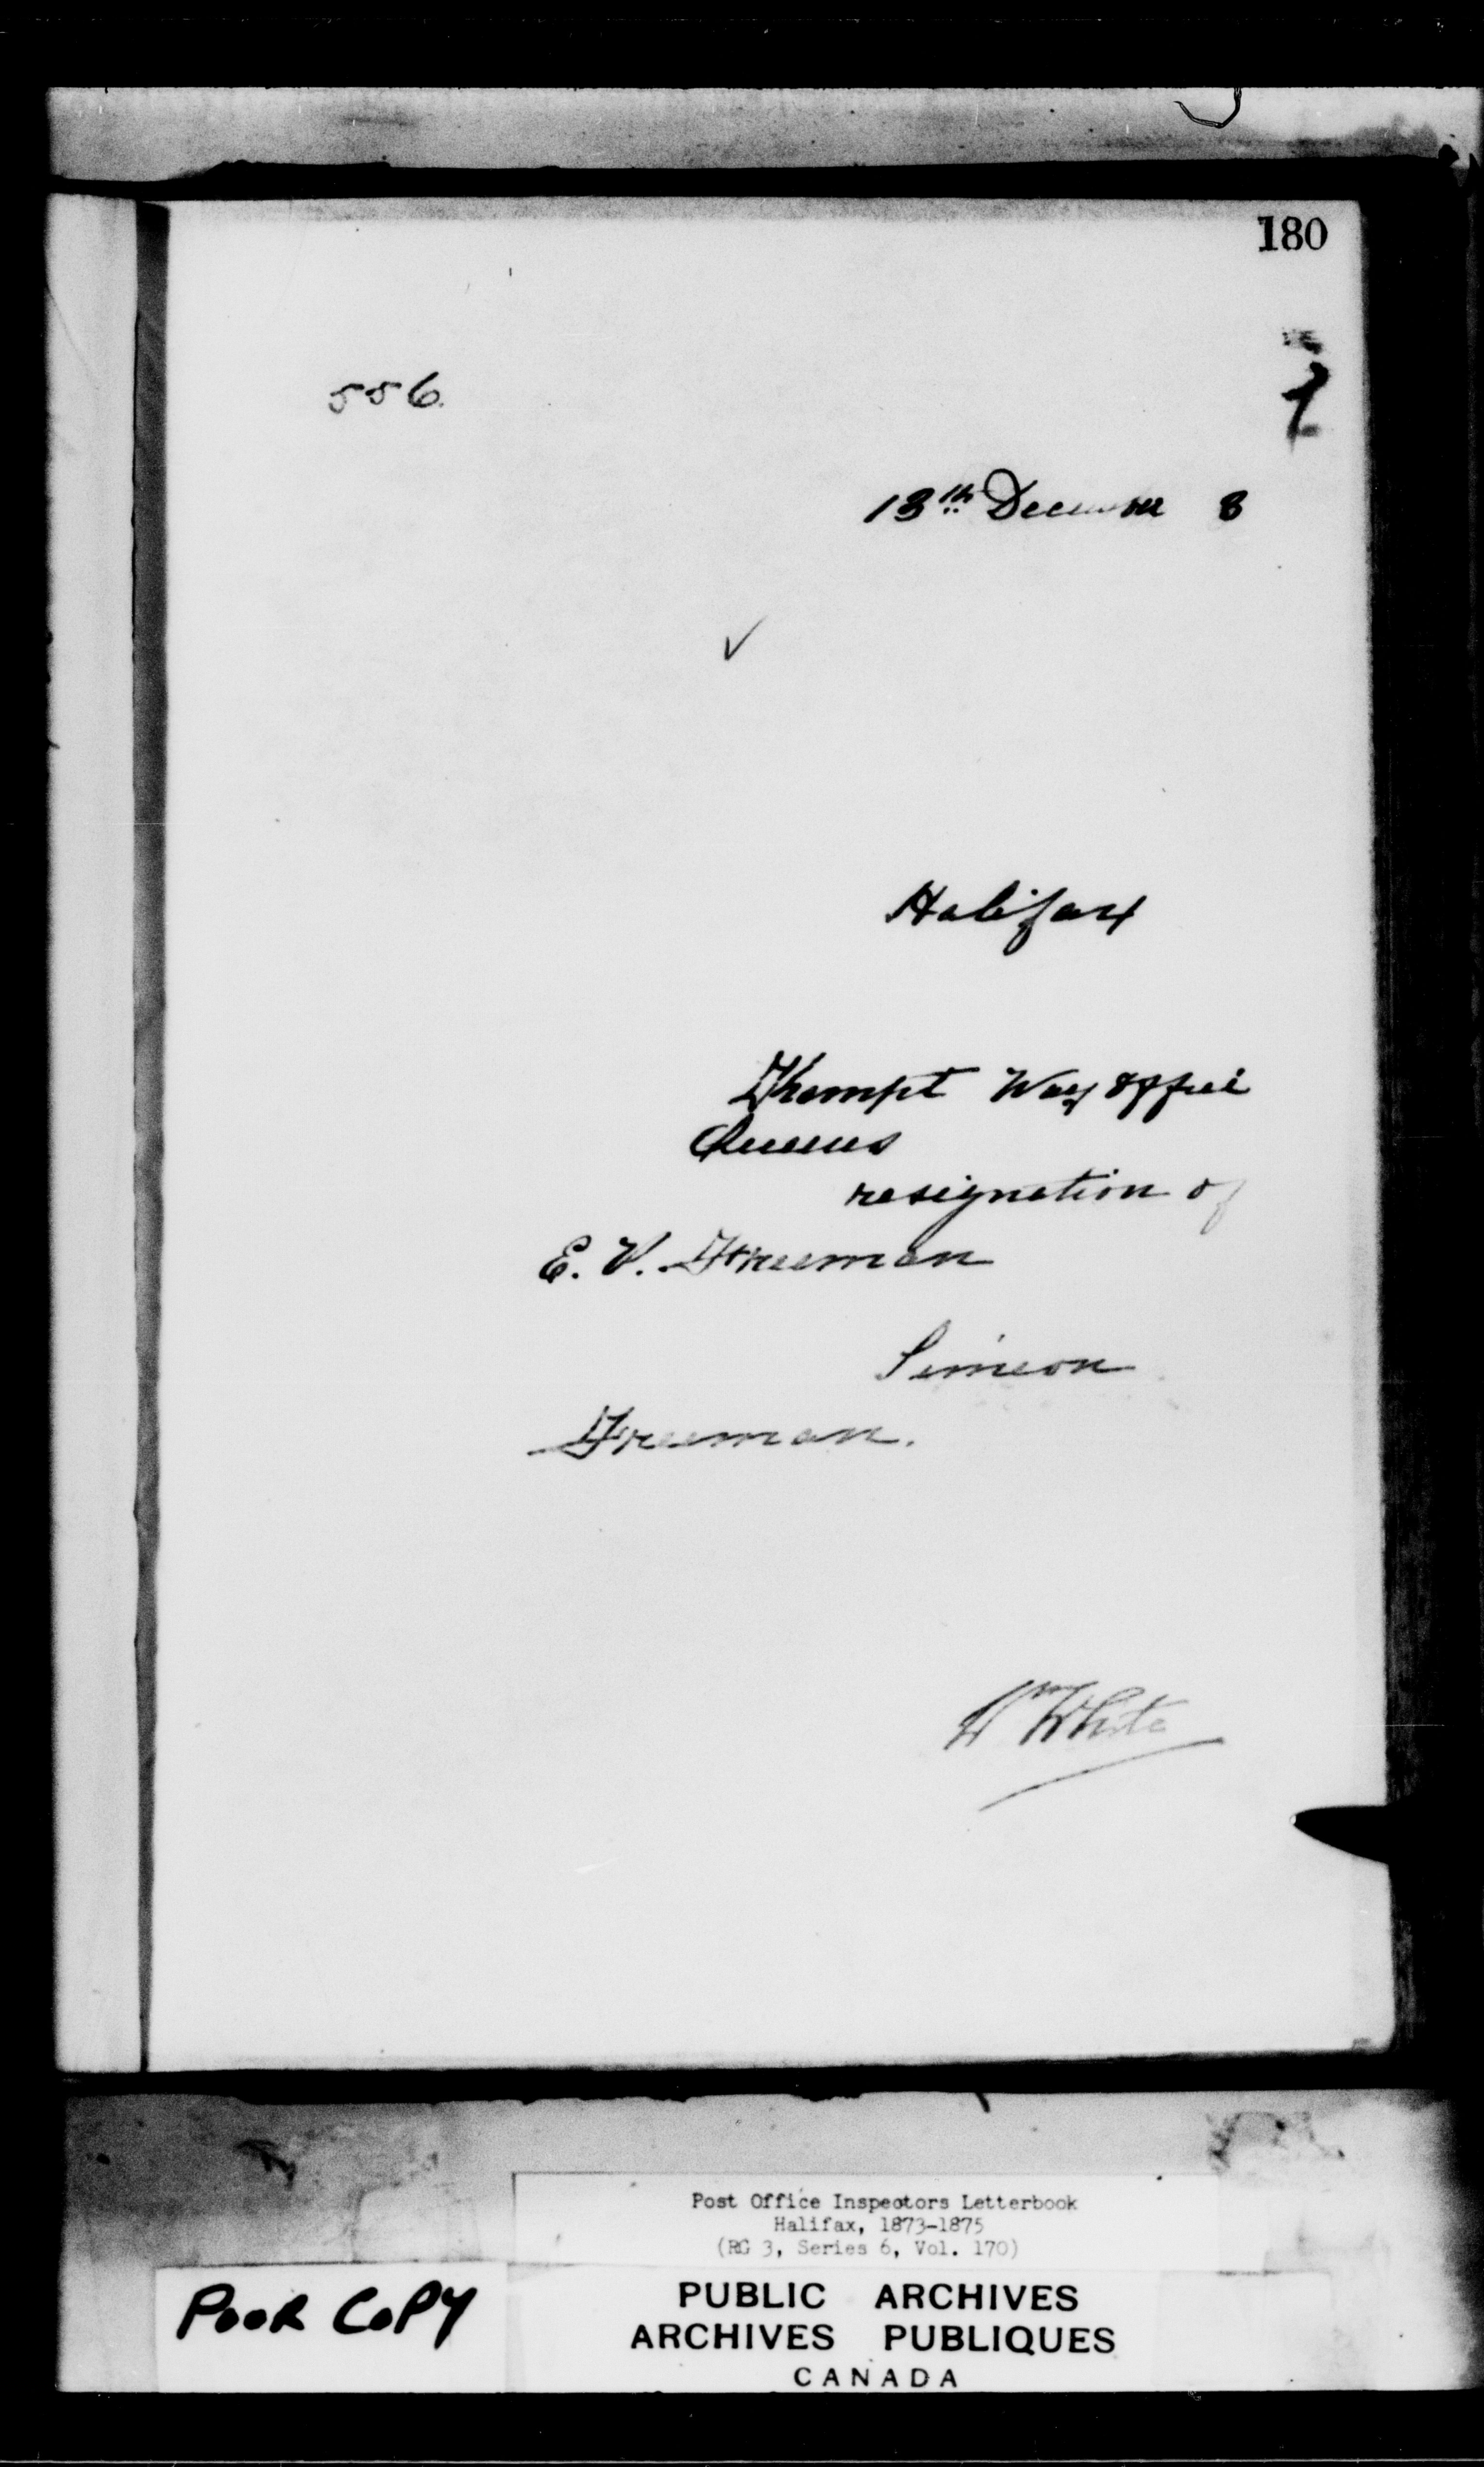 180
556.
13th December 3
Halifax
Kempt Way Office
Queens
resignation of
E. V. Freeman
Simeon
Freeman.
Wm White
Post Office Inspectors Letterbook
Halifax, 1873-1875
(RG 3, Series 6, Vol. 170)
POOR COPY
PUBLIC ARCHIVES
ARCHIVES PUBLIQUES
CANADA